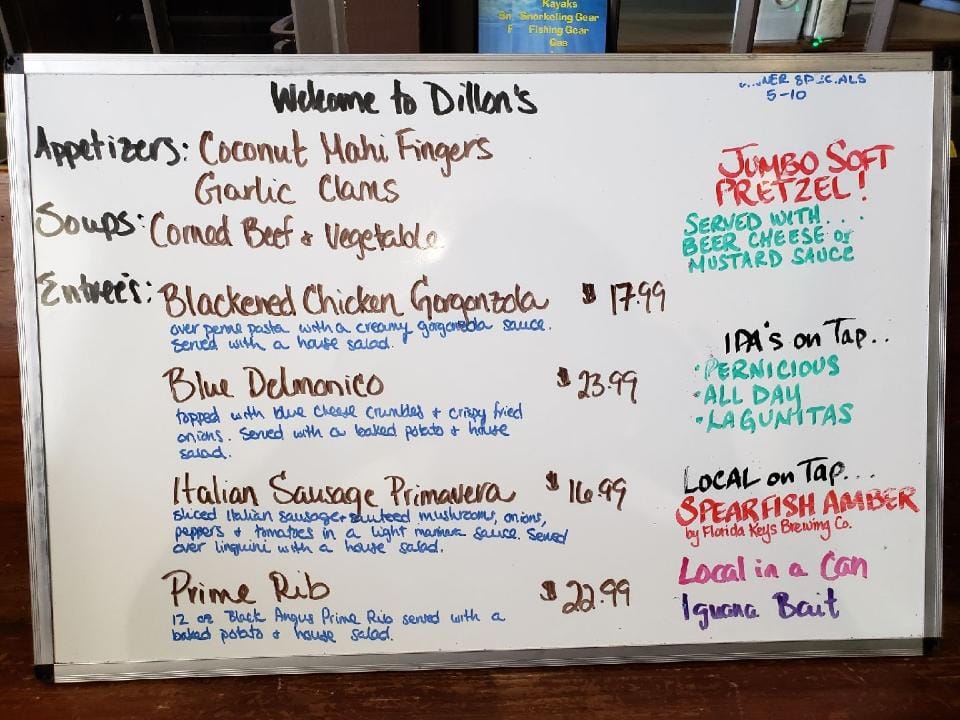 Kayaks
Snorkeling Gear
Fishing Gear
Gas
Welcome to Dillon's
Appetizers: Coconut Mahi Fingers
Garlic Clams
Soups: Corned Beef & Vegetable
Entreé's:
Blackened Chicken Gorgonzola $17.99
over penne pasta with a creamy gorgonzola sauce.
Served with a house salad.
Blue Delmonico $23.99
topped with blue cheese crumbles & crispy fried
onions. Served with a baked potato & house
salad.
Italian Sausage Primavera $16.99
sliced Italian sausage & sauteed mushrooms, onions,
peppers & tomatoes in a light marinara sauce. Served
over linguini with a house salad.
Prime Rib $22.99
12 oz Black Angus Prime Rib served with a
baked potato & house salad.
SPECIALS
5-10
JUMBO SOFT
PRETZEL!
SERVED WITH...
BEER CHEESE or
MUSTARD SAUCE
IPA's on Tap..
•PERNICIOUS
•ALL DAY
•LAGUNITAS
LOCAL on Tap...
SPEARFISH AMBER
by Florida Keys Brewing Co.
Local in a Can
Iguana Bait